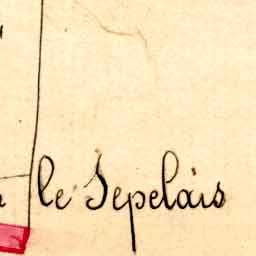 le Sepelais